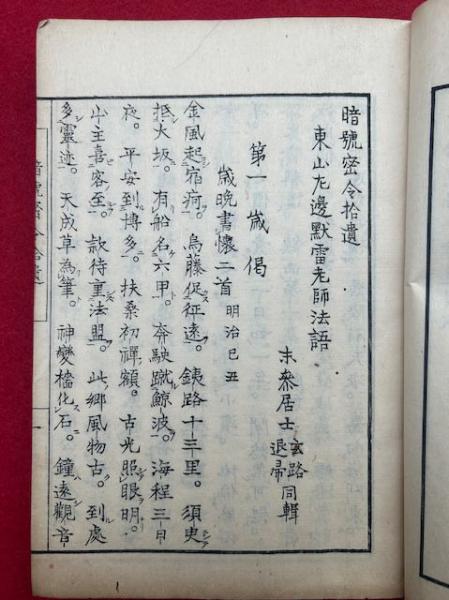 暗號密令拾遺
東山左邊默雷老師法語
末參居士玄路退帰同輯
第一歳偈
歳晩書懷二首 明治己丑
金風起宿痾。烏藤促征遠。銕路十三里。須臾
抵大坂。有船名六甲。奔駛蹴鯨波。海程三日
夜。平安到博多。扶桑初禪額。古光照眼明。
山主喜客至。款待重法盟。此鄉風物古。到處
多靈迹。天成草為筆。神變檣化石。鐘遠觀音
暗號密令拾遺
一